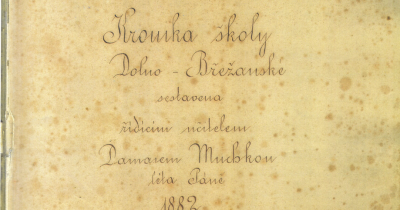 Kronika školy
Dolno - Břežanské
sestavena
řídícím učitelem
Damasem Muchkou
léta Páně
1882